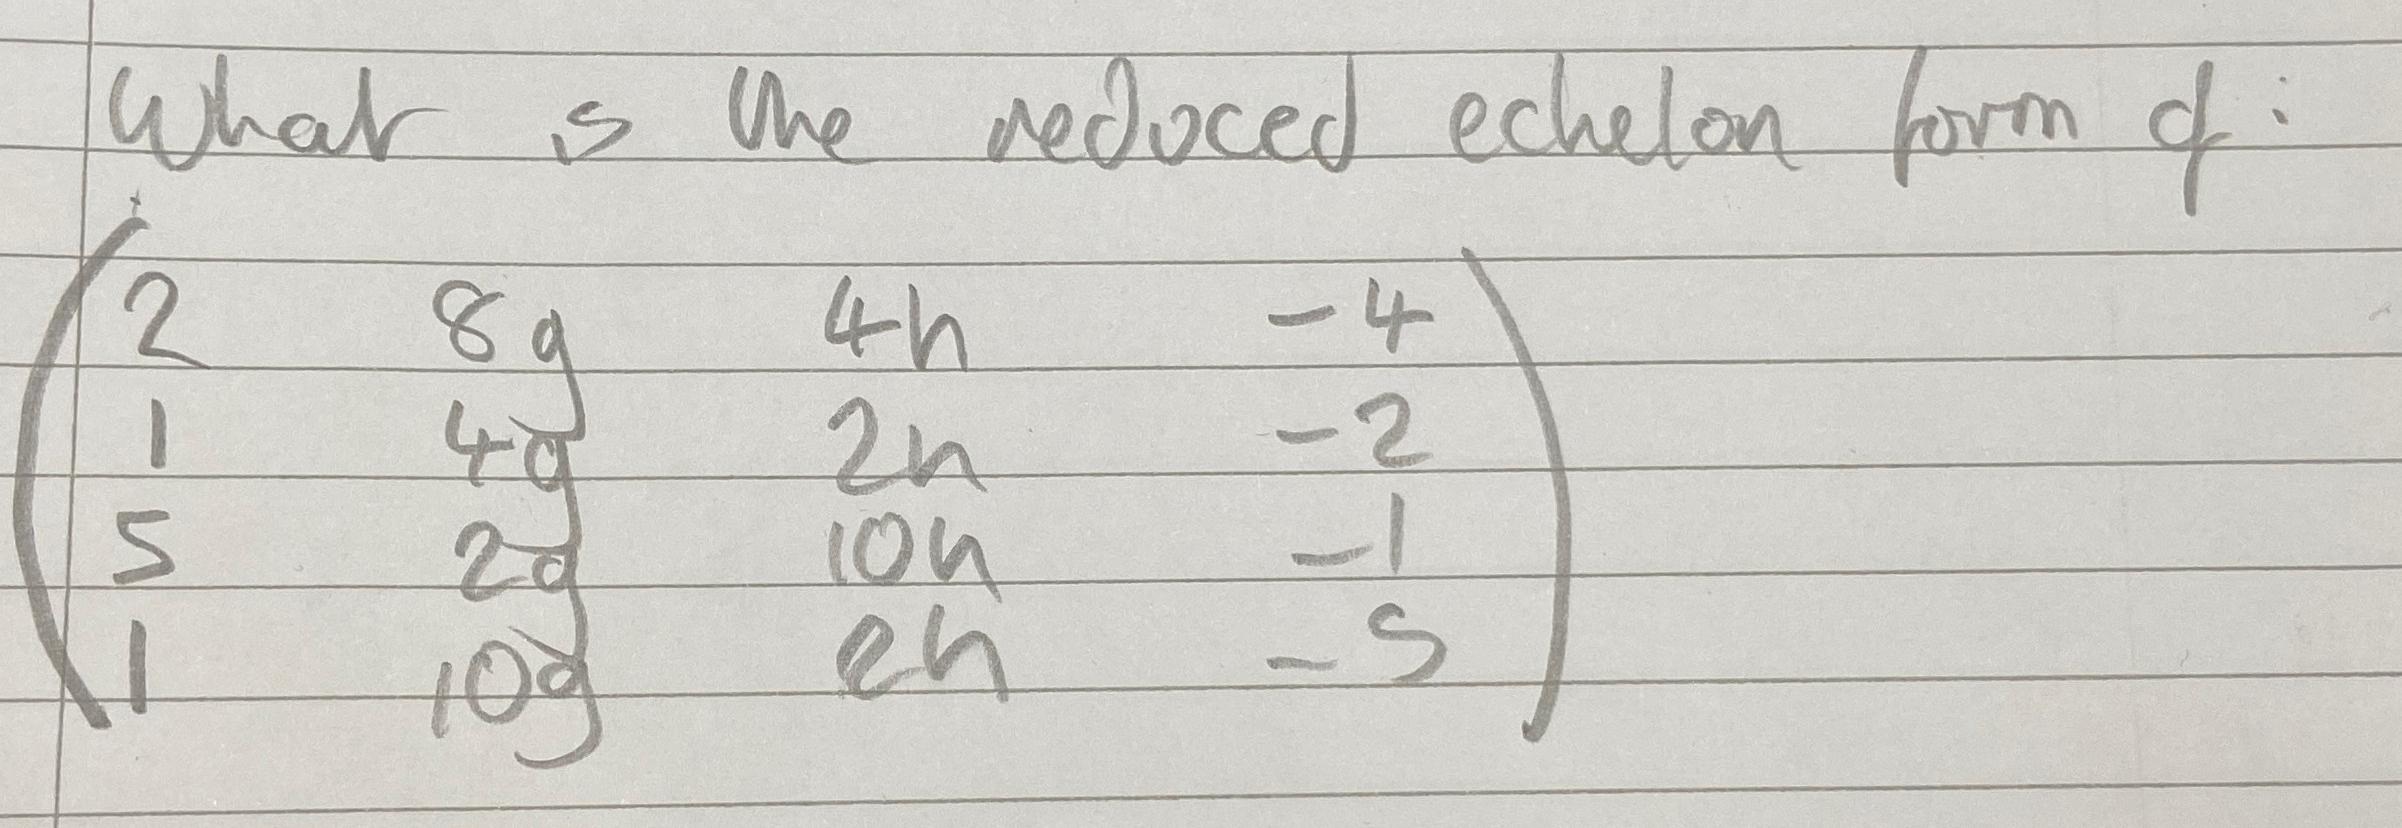 What is the reduced echelon form of:
2 8g 4h -4
1 4g 2h -2
5 2g 10h -1
1 10g 2h -5